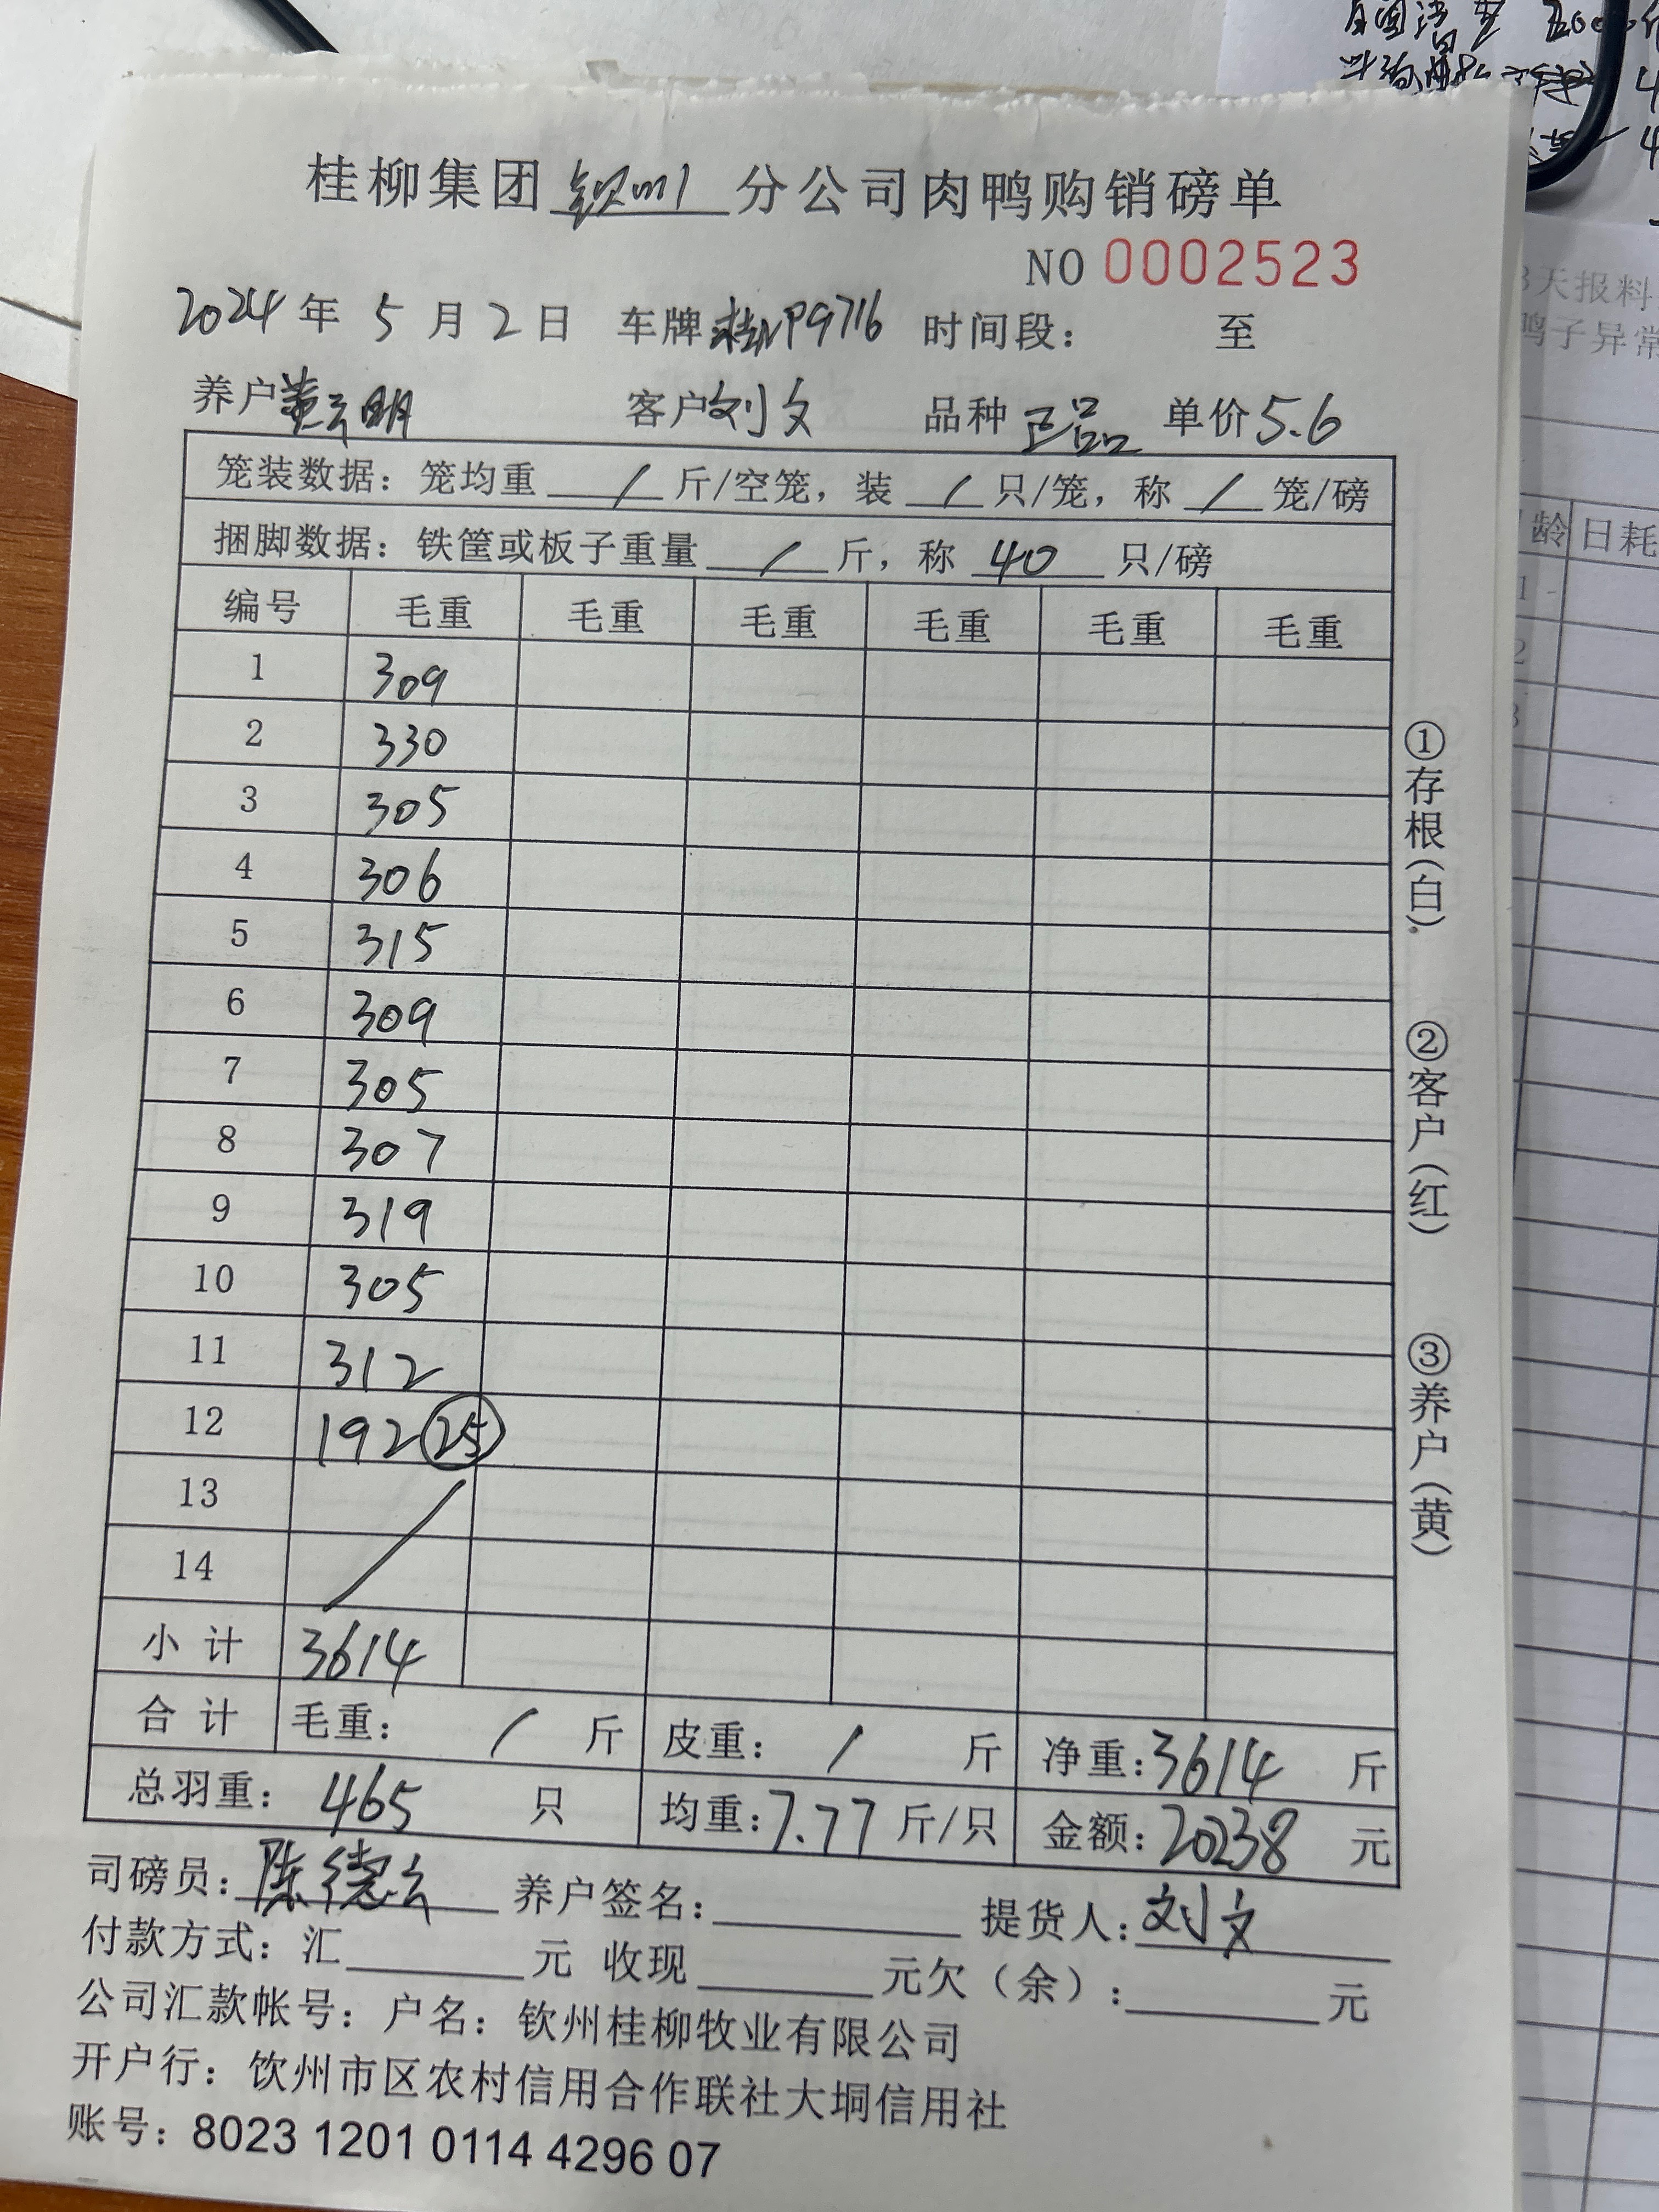 桂柳集团 钦州 分公司肉鸭购销磅单
NO 0002523
2024 年 5 月 2 日 车牌 桂P9716 时间段： 至
养户 黄云明 客户 刘文 品种 正品 单价 5.6
笼装数据：笼均重 / 斤/空笼，装 / 只/笼，称 / 笼/磅
捆脚数据：铁筐或板子重量 / 斤，称 40 只/磅
编号 毛重 毛重 毛重 毛重 毛重 毛重
1 309
2 330
3 305
4 306
5 315
6 309
7 305
8 307
9 319
10 305
11 312
12 192 25
13
14
小计 3614
合计 毛重： / 斤 皮重： / 斤 净重：3614 斤
总羽重： 465 只 均重：7.77 斤/只 金额：20238 元
司磅员：陈德云 养户签名： 提货人：刘文
付款方式：汇 元 收现 元欠（余）： 元
公司汇款帐号：户名：钦州桂柳牧业有限公司
开户行：钦州市区农村信用合作联社大垌信用社
账号：8023 1201 0114 4296 07
①存根（白）. ②客户（红） ③养户（黄）
3天报料
鸭子异常
龄 日耗
1
2
3